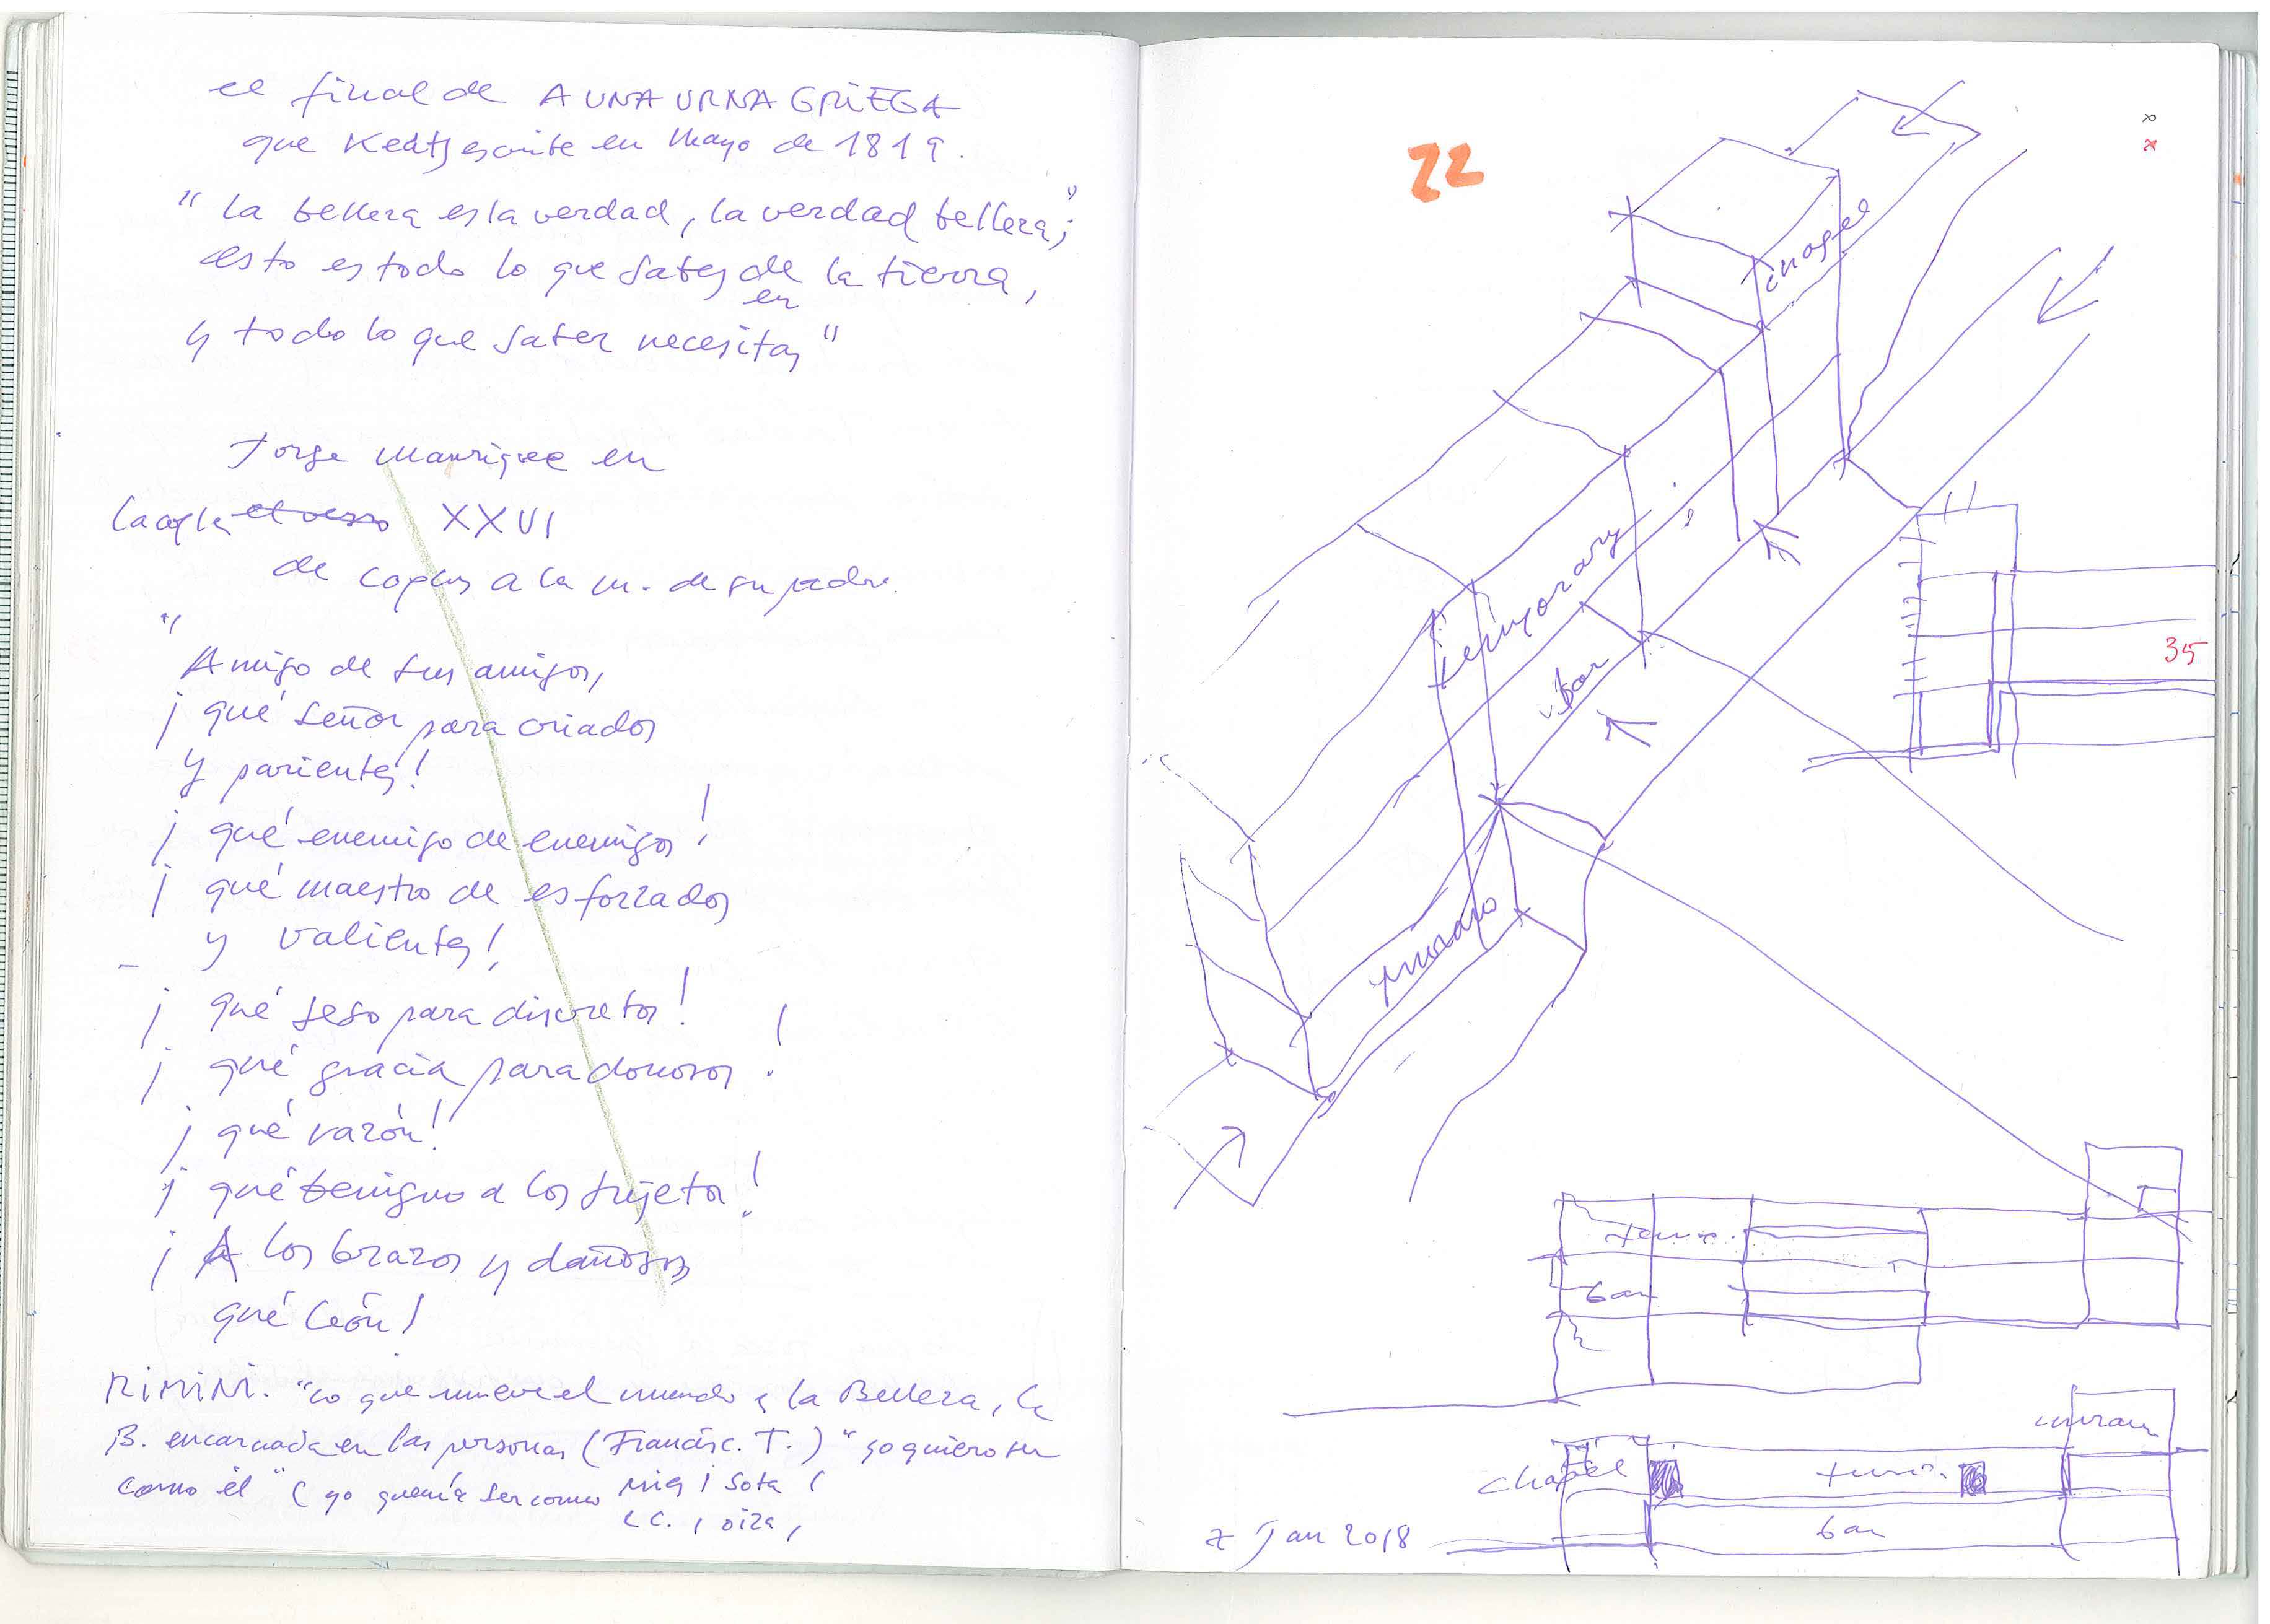 el final de A UNA URNA GRIEGA
que Keats escribe en Mayo de 1819.
"La belleza es la verdad, la verdad belleza";
esto es todo lo que sabes de la tierra,
en
y todo lo que saber necesitas"
Jorge Manrique en
la copla el verso XXVI
de coplas a la m. de su padre.
"
Amigo de sus amigos,
¡qué señor para criados
y parientes!
¡qué enemigo de enemigos!
¡qué maestro de esforzados
y valientes!
¡qué seso para discretos!
¡qué gracia para donosos!
¡qué razón!
¡qué benigno a los sujetos!
¡A los brazos y dañosos
qué león!
RIMINI. "lo que mueve el mundo es la Belleza, la
B. encarnada en las personas (Francisc. T.) "yo quiero ser
como él" (yo quería ser como Mig, Sota,
LC., oiza,
22
chapel
temporary
bar
35
temp.
bar
chapel
temp.
bar
7 Jan 2018